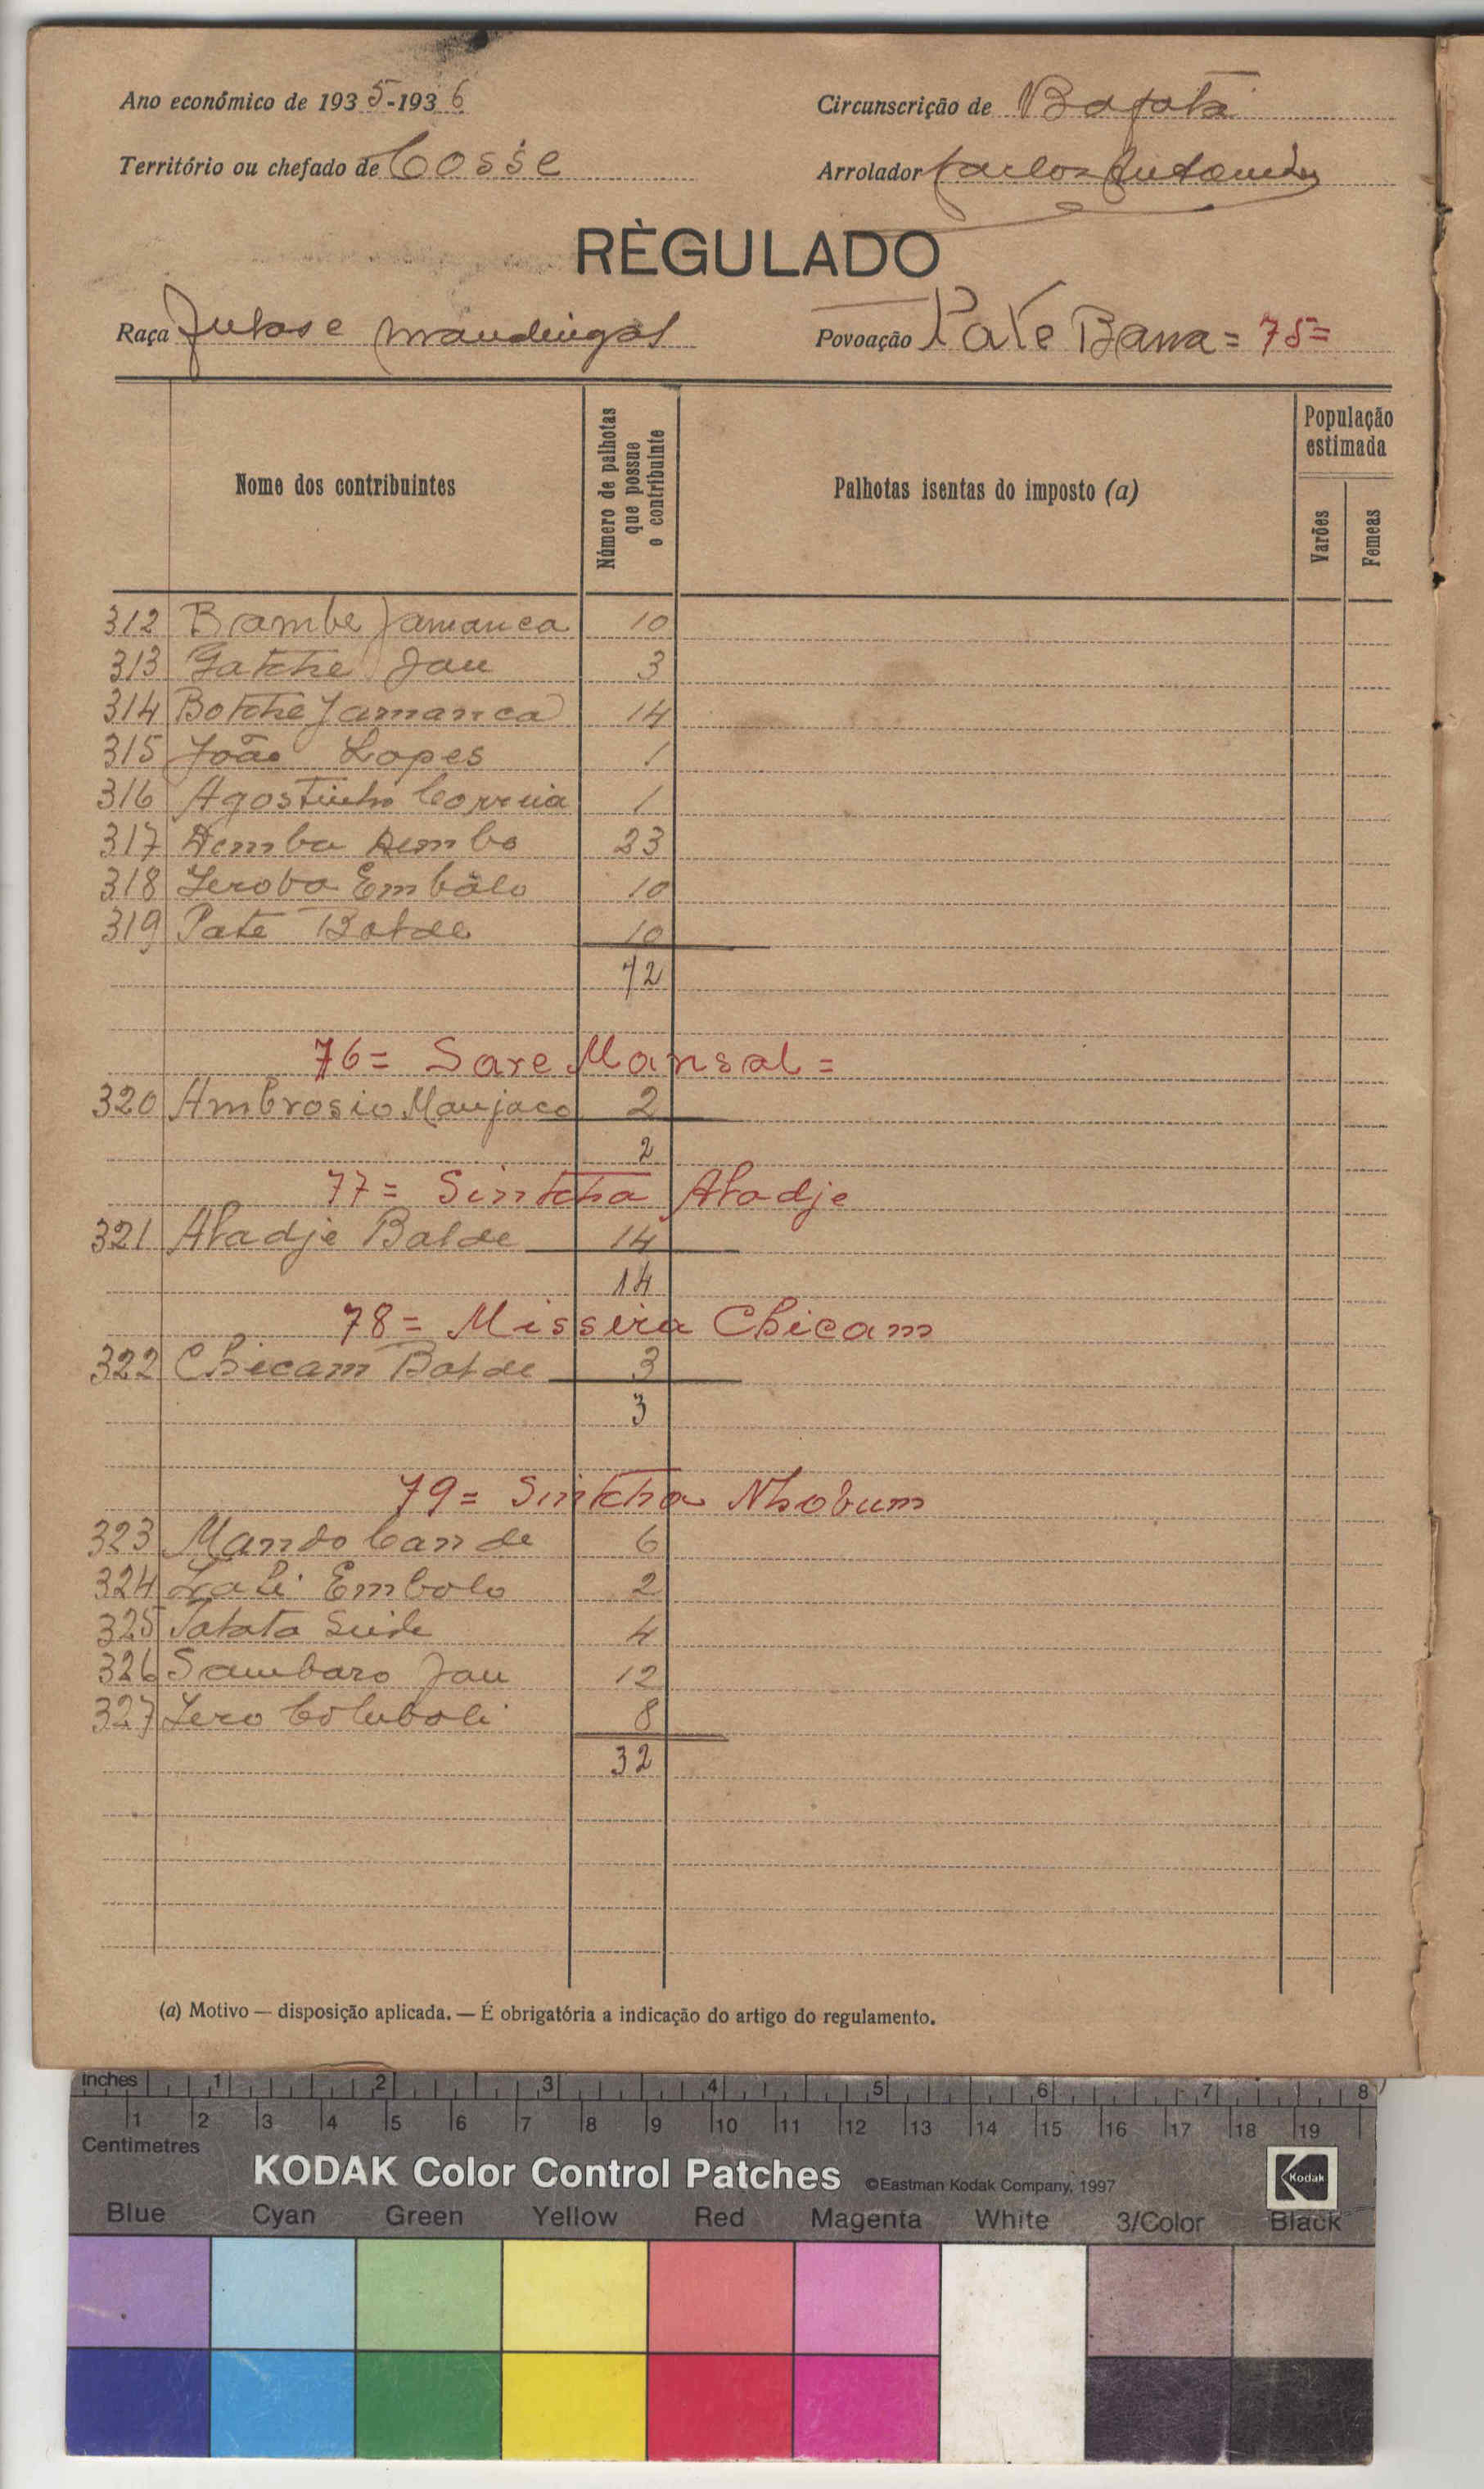 Ano económico de 1935-1936
Circunscrição de Bafatá
Território ou chefado de Cossé
Arrolador Carlos
RÈGULADO
Raça Fulas e Mandingas
Povoação Pate Bana = 75=
Nome dos contribuintes
Número de palhotas que possue o contribuinte
Palhotas isentas do imposto (a)
População estimada
Varões
Femeas
312 Bambe Jamanca 10
313 Gatche Jau 3
314 Botche Jamanca 14
315 João Lopes 1
316 Agostinho Correia 1
317 Demba Dembo 23
318 Seroba Embálo 10
319 Pate Balde 10
72
76= Sare Mansal =
320 Ambrosio Manjaco 2
2
77= Sintcha Aladje
321 Aladje Balde 14
14
78= Missira Chicam
322 Chicam Balde 3
3
79= Sintcha Nhobum
323 Mando Cande 6
324 Lali Embalo 2
325 Tatata 4
326 Sambaro Jau 12
327 8
32
(a) Motivo — disposição aplicada. — É obrigatória a indicação do artigo do regulamento.
Inches 1 2 3 4 5 6 7 8
1 2 3 4 5 6 7 8 9 10 11 12 13 14 15 16 17 18 19
Centimetres
KODAK Color Control Patches ©Eastman Kodak Company, 1997 Kodak
Blue Cyan Green Yellow Red Magenta White 3/Color Black